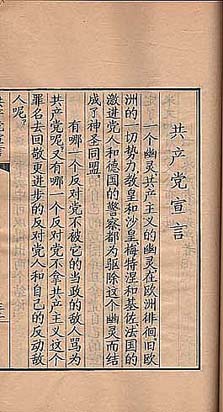 共产党宣言
一个幽灵,共产主义的幽灵,在欧洲徘徊。旧欧
洲的一切势力,教皇和沙皇、梅特涅和基佐、法国的
激进党人和德国的警察,都为驱除这个幽灵而结
成了神圣同盟。
有哪一个反对党不被它的当政的敌人骂为
共产党呢?又有哪一个反对党不拿共产主义这个
罪名去回敬更进步的反对党人和自己的反动敌
人呢?